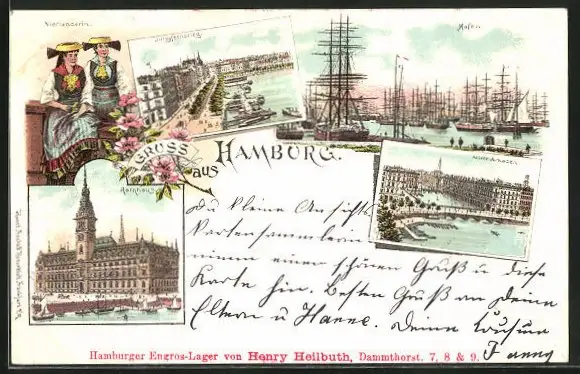 Vierländerin.
Jungfernstieg
Hafen
GRUSS
aus
HAMBURG.
Rathhaus
Alsterarkaden
Du kleine Ansichts
kartensammlerin
nimm einen schönen Gruß u diese
Karte hin. Besten Gruß an Deine
Eltern u Hanne. Deine Cousine
Fanny
Hamburger Engros-Lager von Henry Heilbuth, Dammthorst. 7, 8 & 9.